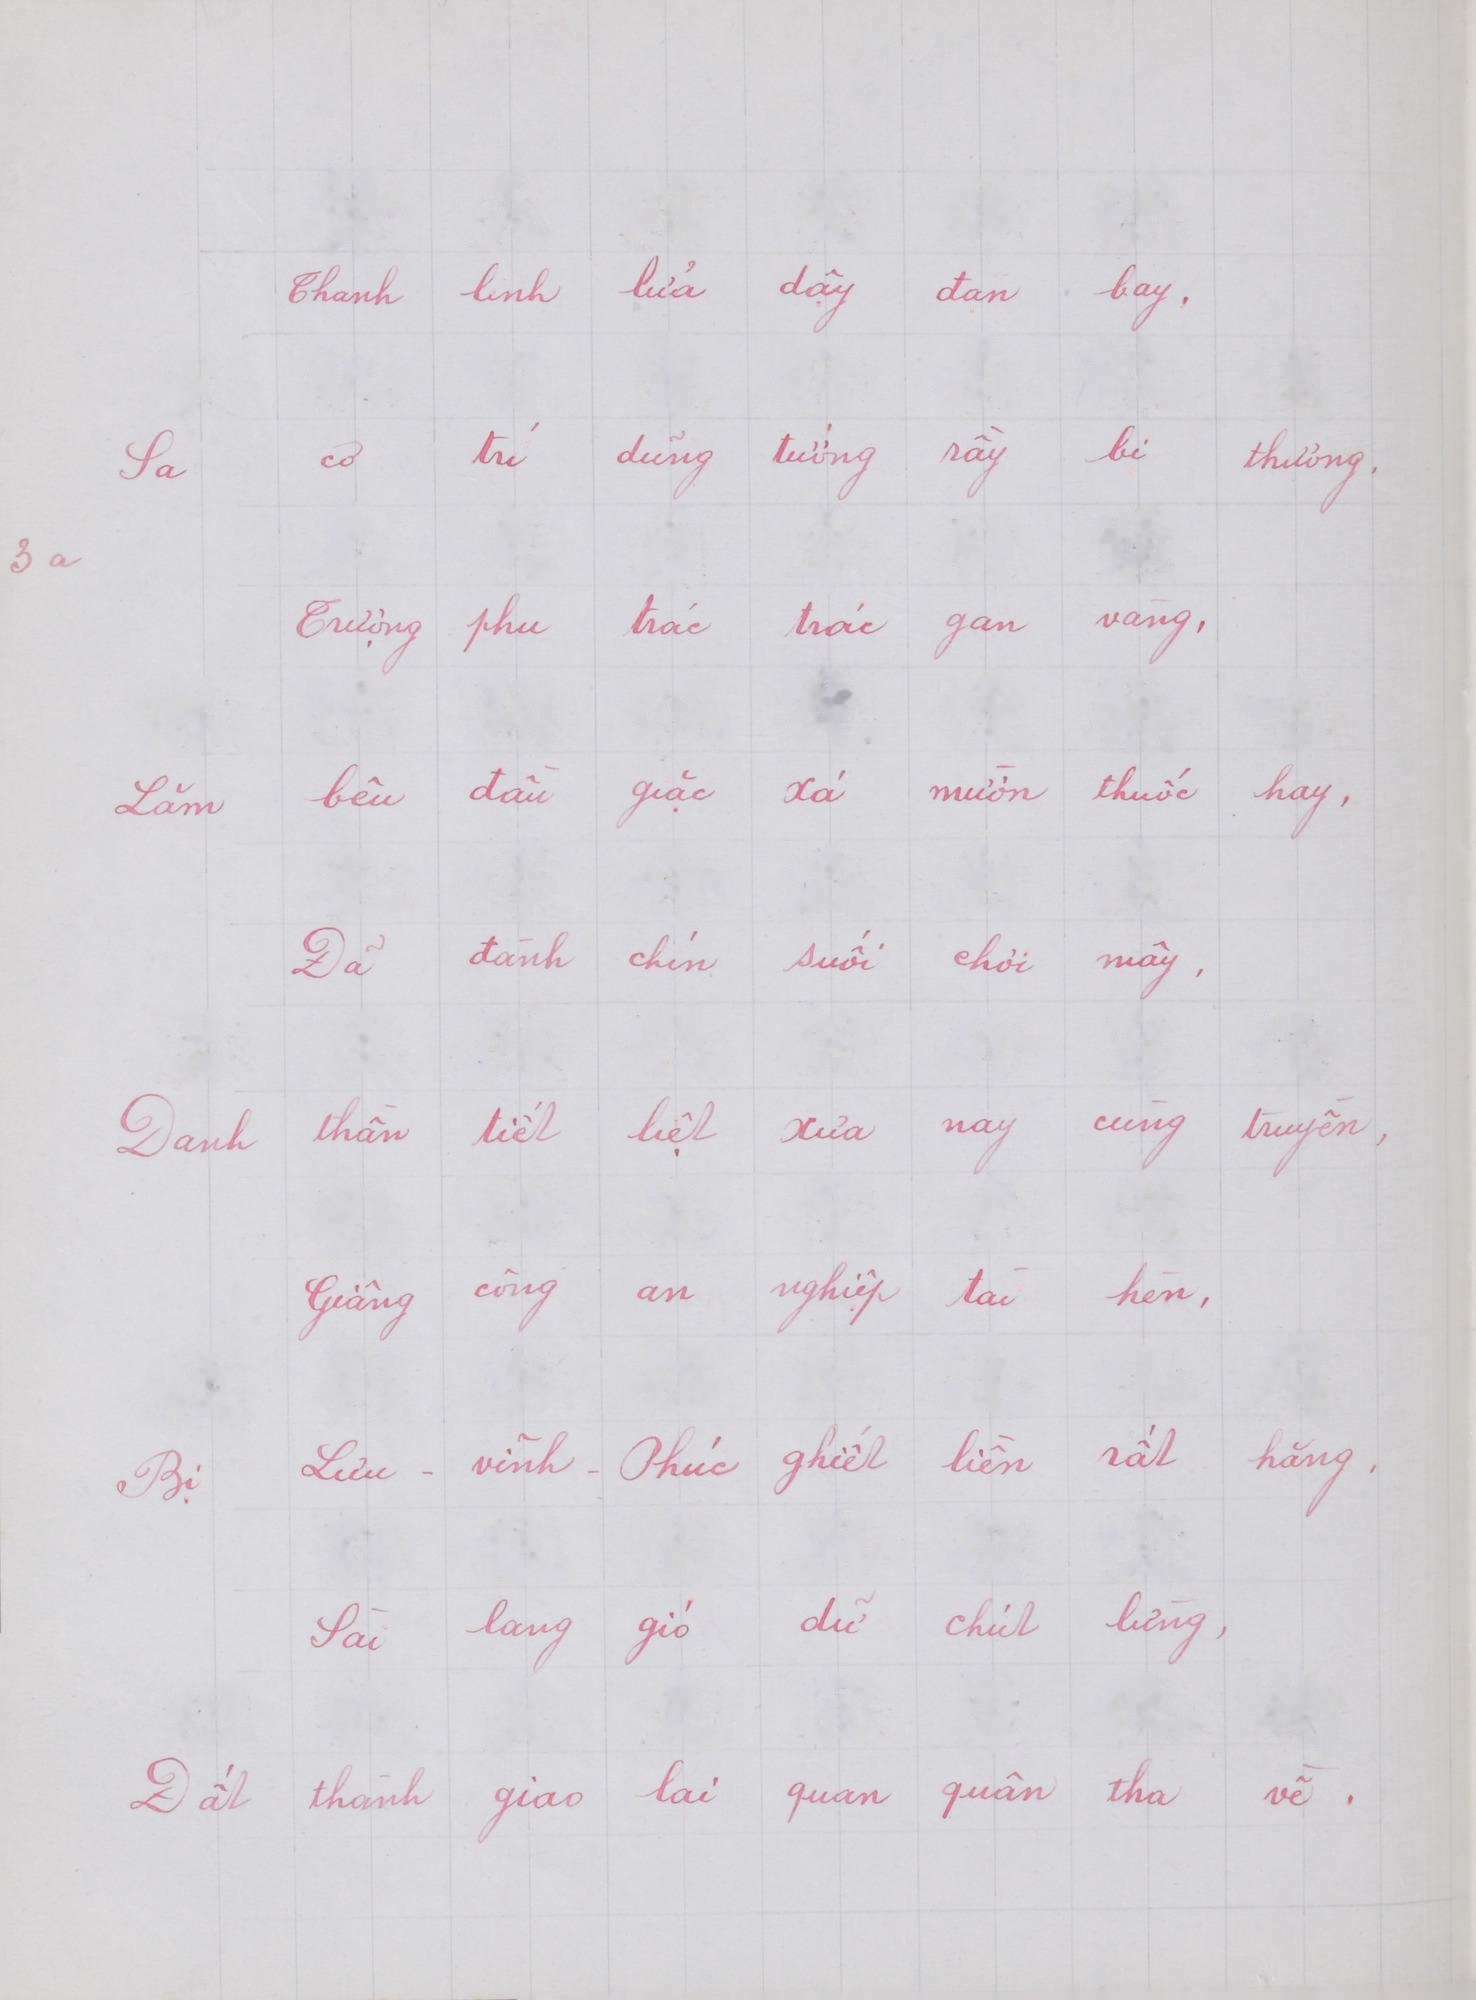 Thanh linh lửa dậy đạn bay,
Sa cơ trí dũng tướng rầy bị thương.
3a
Trượng phu trác trác gan vàng,
Lăm bêu đầu giặc xá mườn thuốc hay,
Đã đành chín suối chơi mây,
Danh thần tiết liệt xưa nay cùng truyền,
Giâng công an nghiệp tài hèn,
Bị Lưu-vĩnh-Phúc ghiết liền rất hăng.
Sài lang gió dữ chút lừng,
Đất thành giao lại quan quân tha về.